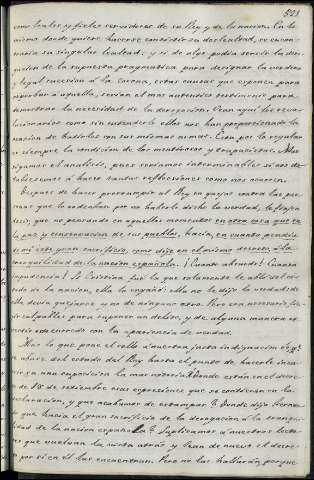 521
como leales y fieles servidores de su Rey y de la nacion. En lo
mismo donde quiere hacerse consistir su deslealtad, se encon-
traria su singular lealtad: y si de algo podia servir la dero-
gacion de la supuesta pragmatica para designar la verdadera
y legal succesion á la corona, estas causas que exponen para
reprobar aquella, serian el mas autentico testimonio para
demostrar la necesidad de la derogacion. Vean aqui los revo-
lucionarios como sin entenderlo ellos nos han proporcionado la
ocasion de batirlos con sus mismas armas. Esta por lo regular
es siempre la condicion de los mentirosos y trapaceros. Mas
sigamos el analisis, pues seriamos interminables si nos de-
tubiesemos á hacer cuantas reflecciones como nos ocurren.
Despues de hacer prorrumpir al Rey en quejas contra las per-
sonas que lo rodeaban por no haberle dicho la verdad, le hacen
decir, que no pensando en aquellos momentos en otra cosa que en
la paz y conservacion de sus pueblos, hacia, en cuanto pendia
de mi, este gran sacrificio, como dije en el mismo decreto, á la
tranquilidad de la nacion española. ¡Cuanto absurdo! ¡Cuanta
impudencia! Si Cristina fué la que solamente le habló del es-
tado de la nacion, ella lo engañó: ella no le dijo la verdad: de
ella devia quejarse y no de ninguno otro. Pero era necesario fin-
gir culpables para suponer un delito, y de alguna manera es-
tender este enredo con la apariencia de verdad.
Mas lo que pone el sello á nuestra justa indignacion es el
abuso del estado del Rey hasta el punto de hacerle incur-
rir en una suposicion la mas notoria. ¿Donde están en el decreto
de 18 de setiembre esas expresiones que se contienen en la
declaracion, y que acabamos de estampar? ¿Donde dijo Fernan-
do que hacia el gran sacrificio de la derogacion á la tranqui-
lidad de la nacion española? Suplicamos á nuestros lecto-
res que vuelvan la vista atrás y lean de nuevo el decreto
por si en él las encuentran. Pero no las hallarán, porque